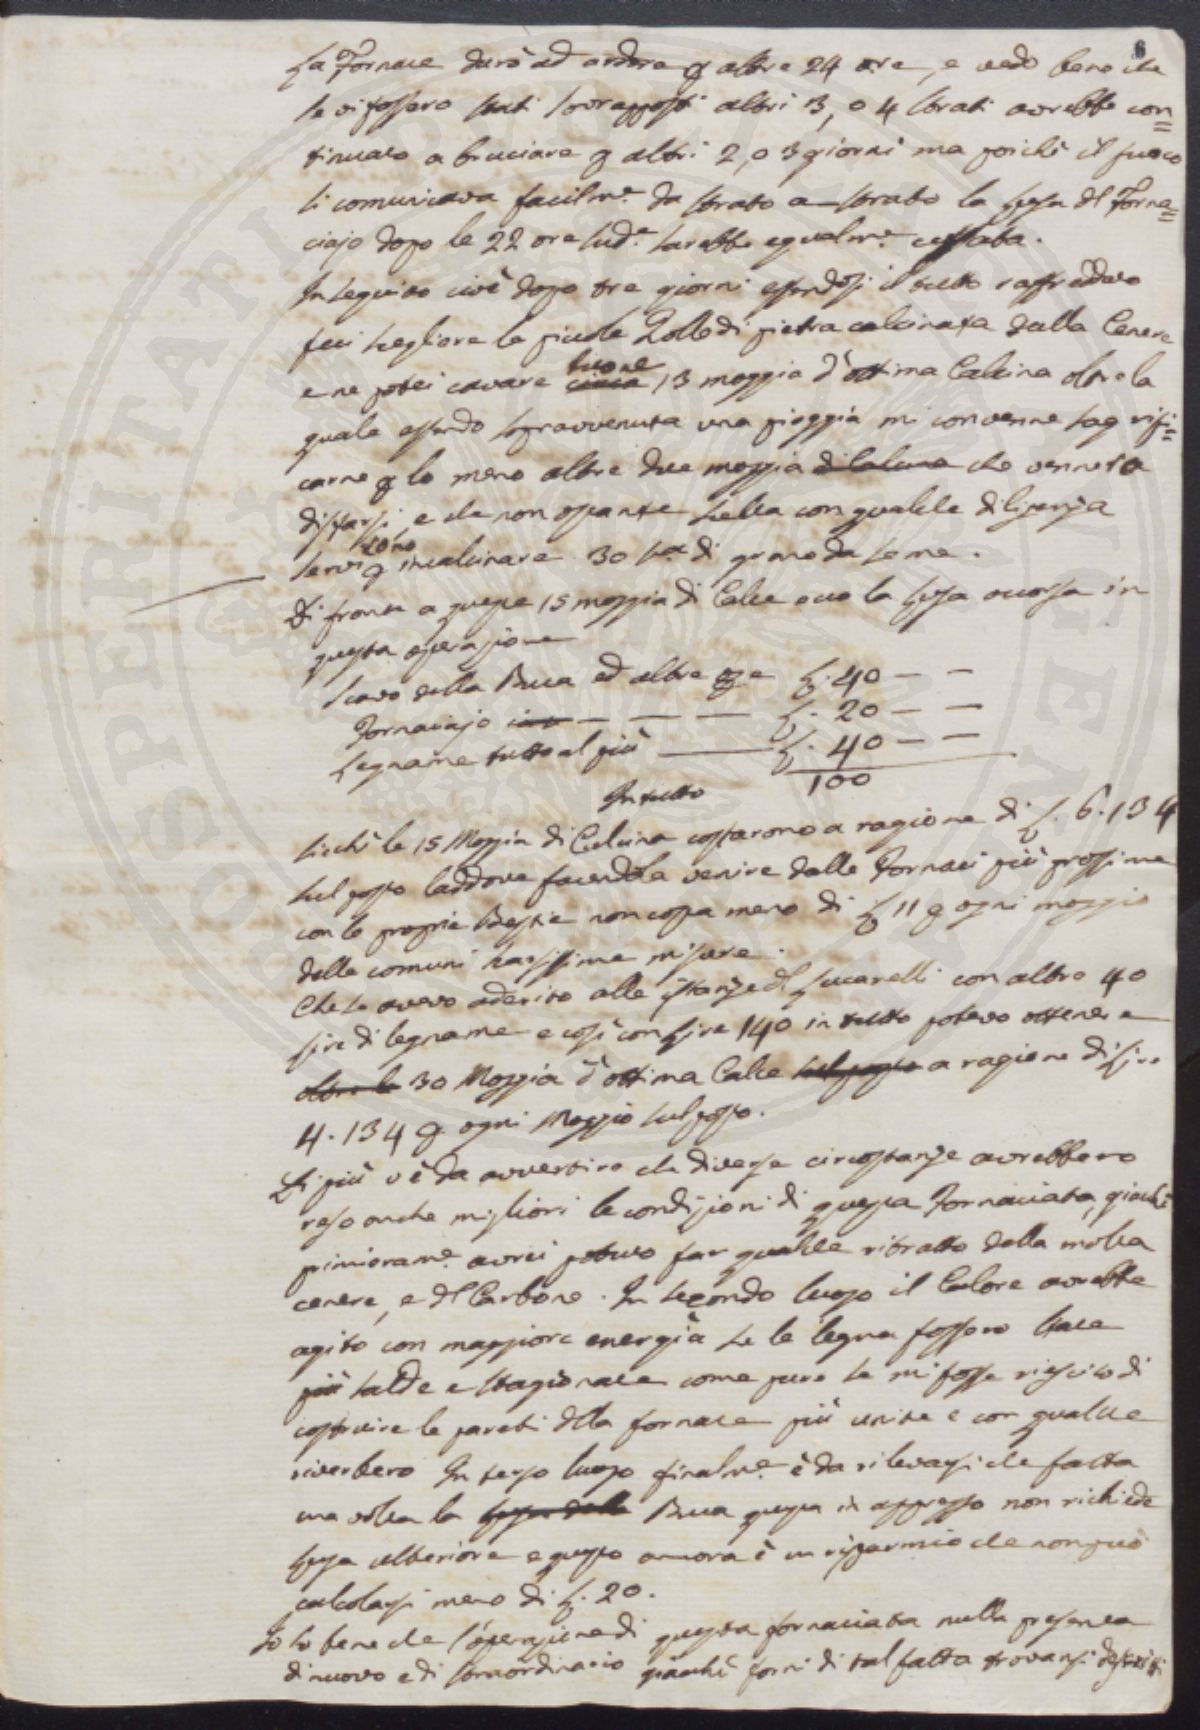 6
La Fornace durò ad ardere p altre 24 ore, e vedo bene che
se vi fossero stati sovrapposti altri 3, o 4 strati avrebbe con=
tinuato a bruciare p altri 2, o 3 giorni ma poichè il fuoco
si comunicava facilm.e da strato a strato la spesa del Forna=
ciajo dopo le 22 ore sud.e sarebbe egualm.e cessata.
In seguito cioè dopo tre giorni essendosi il tutto raffreddato
feci scegliere le piccole Zolle di pietra calcinata dalla Cenere
buone
e ne potei cavare circa 13 moggia d'ottima Calcina oltre la
quale essendo sopravvenuta una pioggia mi convenne sagrifi=
carne p lo meno altre due moggia di Calcina che vennero a
disfarsi, e che non ostante scelta con qualche diligenza
servirono p incalcinare 30 s.a di grano da seme.
Di fronte a queste 15 moggia di Calce ecco la spesa occorsa in
questa operazione
Scavo della Buca ed altre L. 40 - -
Fornaciajo - - - L. 20 - -
Legname tutto al più L. 40 - -
In tutto 100
Sicchè le 15 Moggia di Calcina costarono a ragione di L. 6.13 4
sul posto laddove facendola venire dalle Fornaci più prossime
con le proprie Bestie non costa meno di L 11 p ogni moggio
delle comuni scarsissime misure.
Che se avevo aderito alle istanze del Lucarelli con altre 40
lire di legname e così con Lire 140 in tutto potevo ottenere
oltre le 30 Moggia d'ottima Calce sul posto a ragione di Lire
4.13 4 p. ogni Moggio sul posto.
Di più v'è da avvertire che diverse circostanze avrebbero
reso anche migliori le condizioni di questa Fornaciata, giacchè
primieram.e avrei potuto far qualche ritratto della molta
cenere, e del Carbone. In secondo luogo il Calore avrebbe
agito con maggiore energia se le legna fossero state
più salde e stagionate come pure se mi fosse riescito di
costruire le pareti della fornace più unite e con qualche
riverbero In terzo luogo finalm.e è da rilevarsi che fatta
una volta la spesa della Buca questa in appresso non richiede
spesa ulteriore e questo ancora è un risparmio che non può
calcolarsi meno di L. 20.
Io so bene che l'operazione di questa fornaciata nulla presenta
di nuovo e di straordinario giacchè forni di tal fatta trovansi descritti